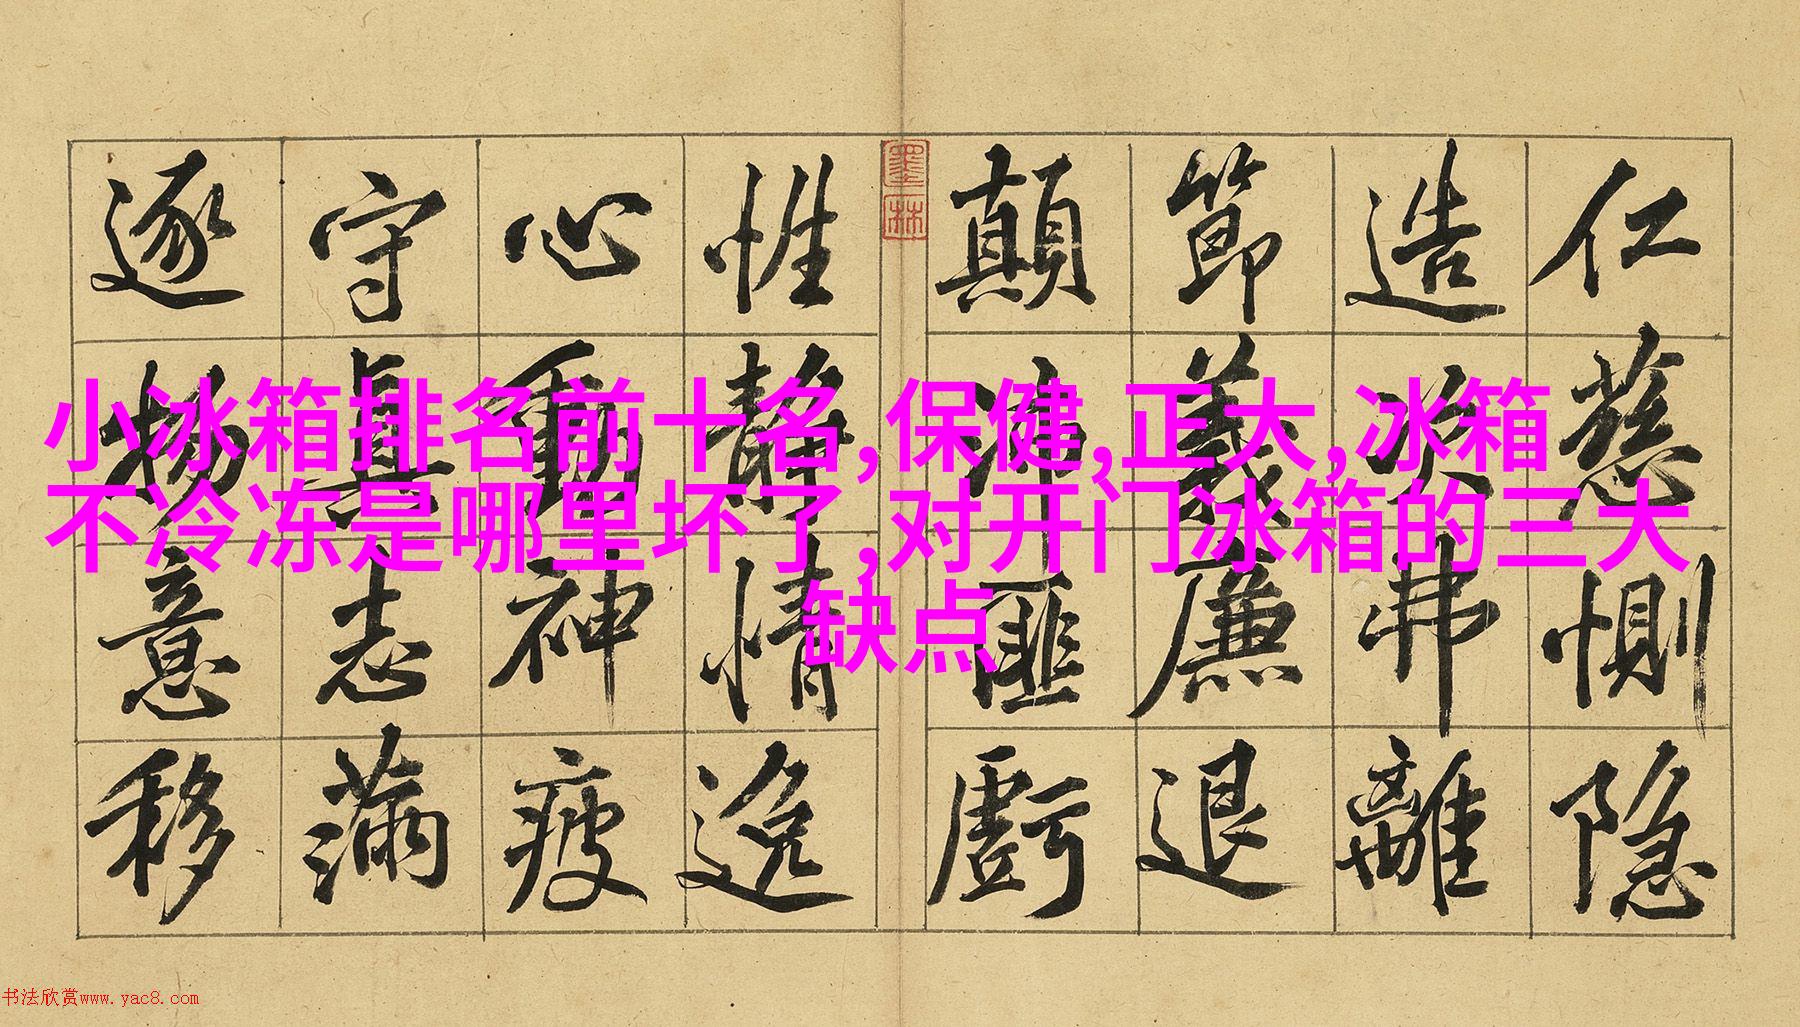 小冰箱排名前十名,保健,正大,冰箱
不冷冻是哪里坏了,对开门冰箱的三大
缺点
仁慈惻隐
造次弗離
節義廉退
顛沛匪虧
墨林
性静情逸
心動神疲
守真志滿
逐物意移
书法欣赏www.yac8.com